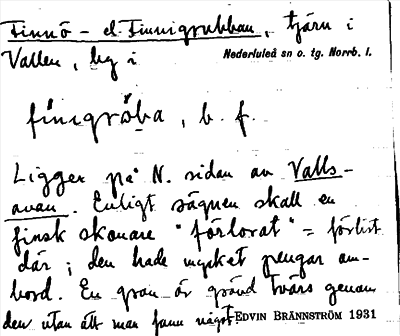 Finnö - el. Finnigrubban, tjärn i
Vallen, by i Nederluleå sn o. tg. Norrb. l.
finigröba, b. f.
Ligger på N. sidan av Valls-
avan. Enligt sägnen skall en
finsk skonare "förlorat" = förlist
där; den hade mycket pengar om-
bord. En gran är grävd tvärs genom
den utan att man fann något. EDVIN BRÄNNSTRÖM 1931